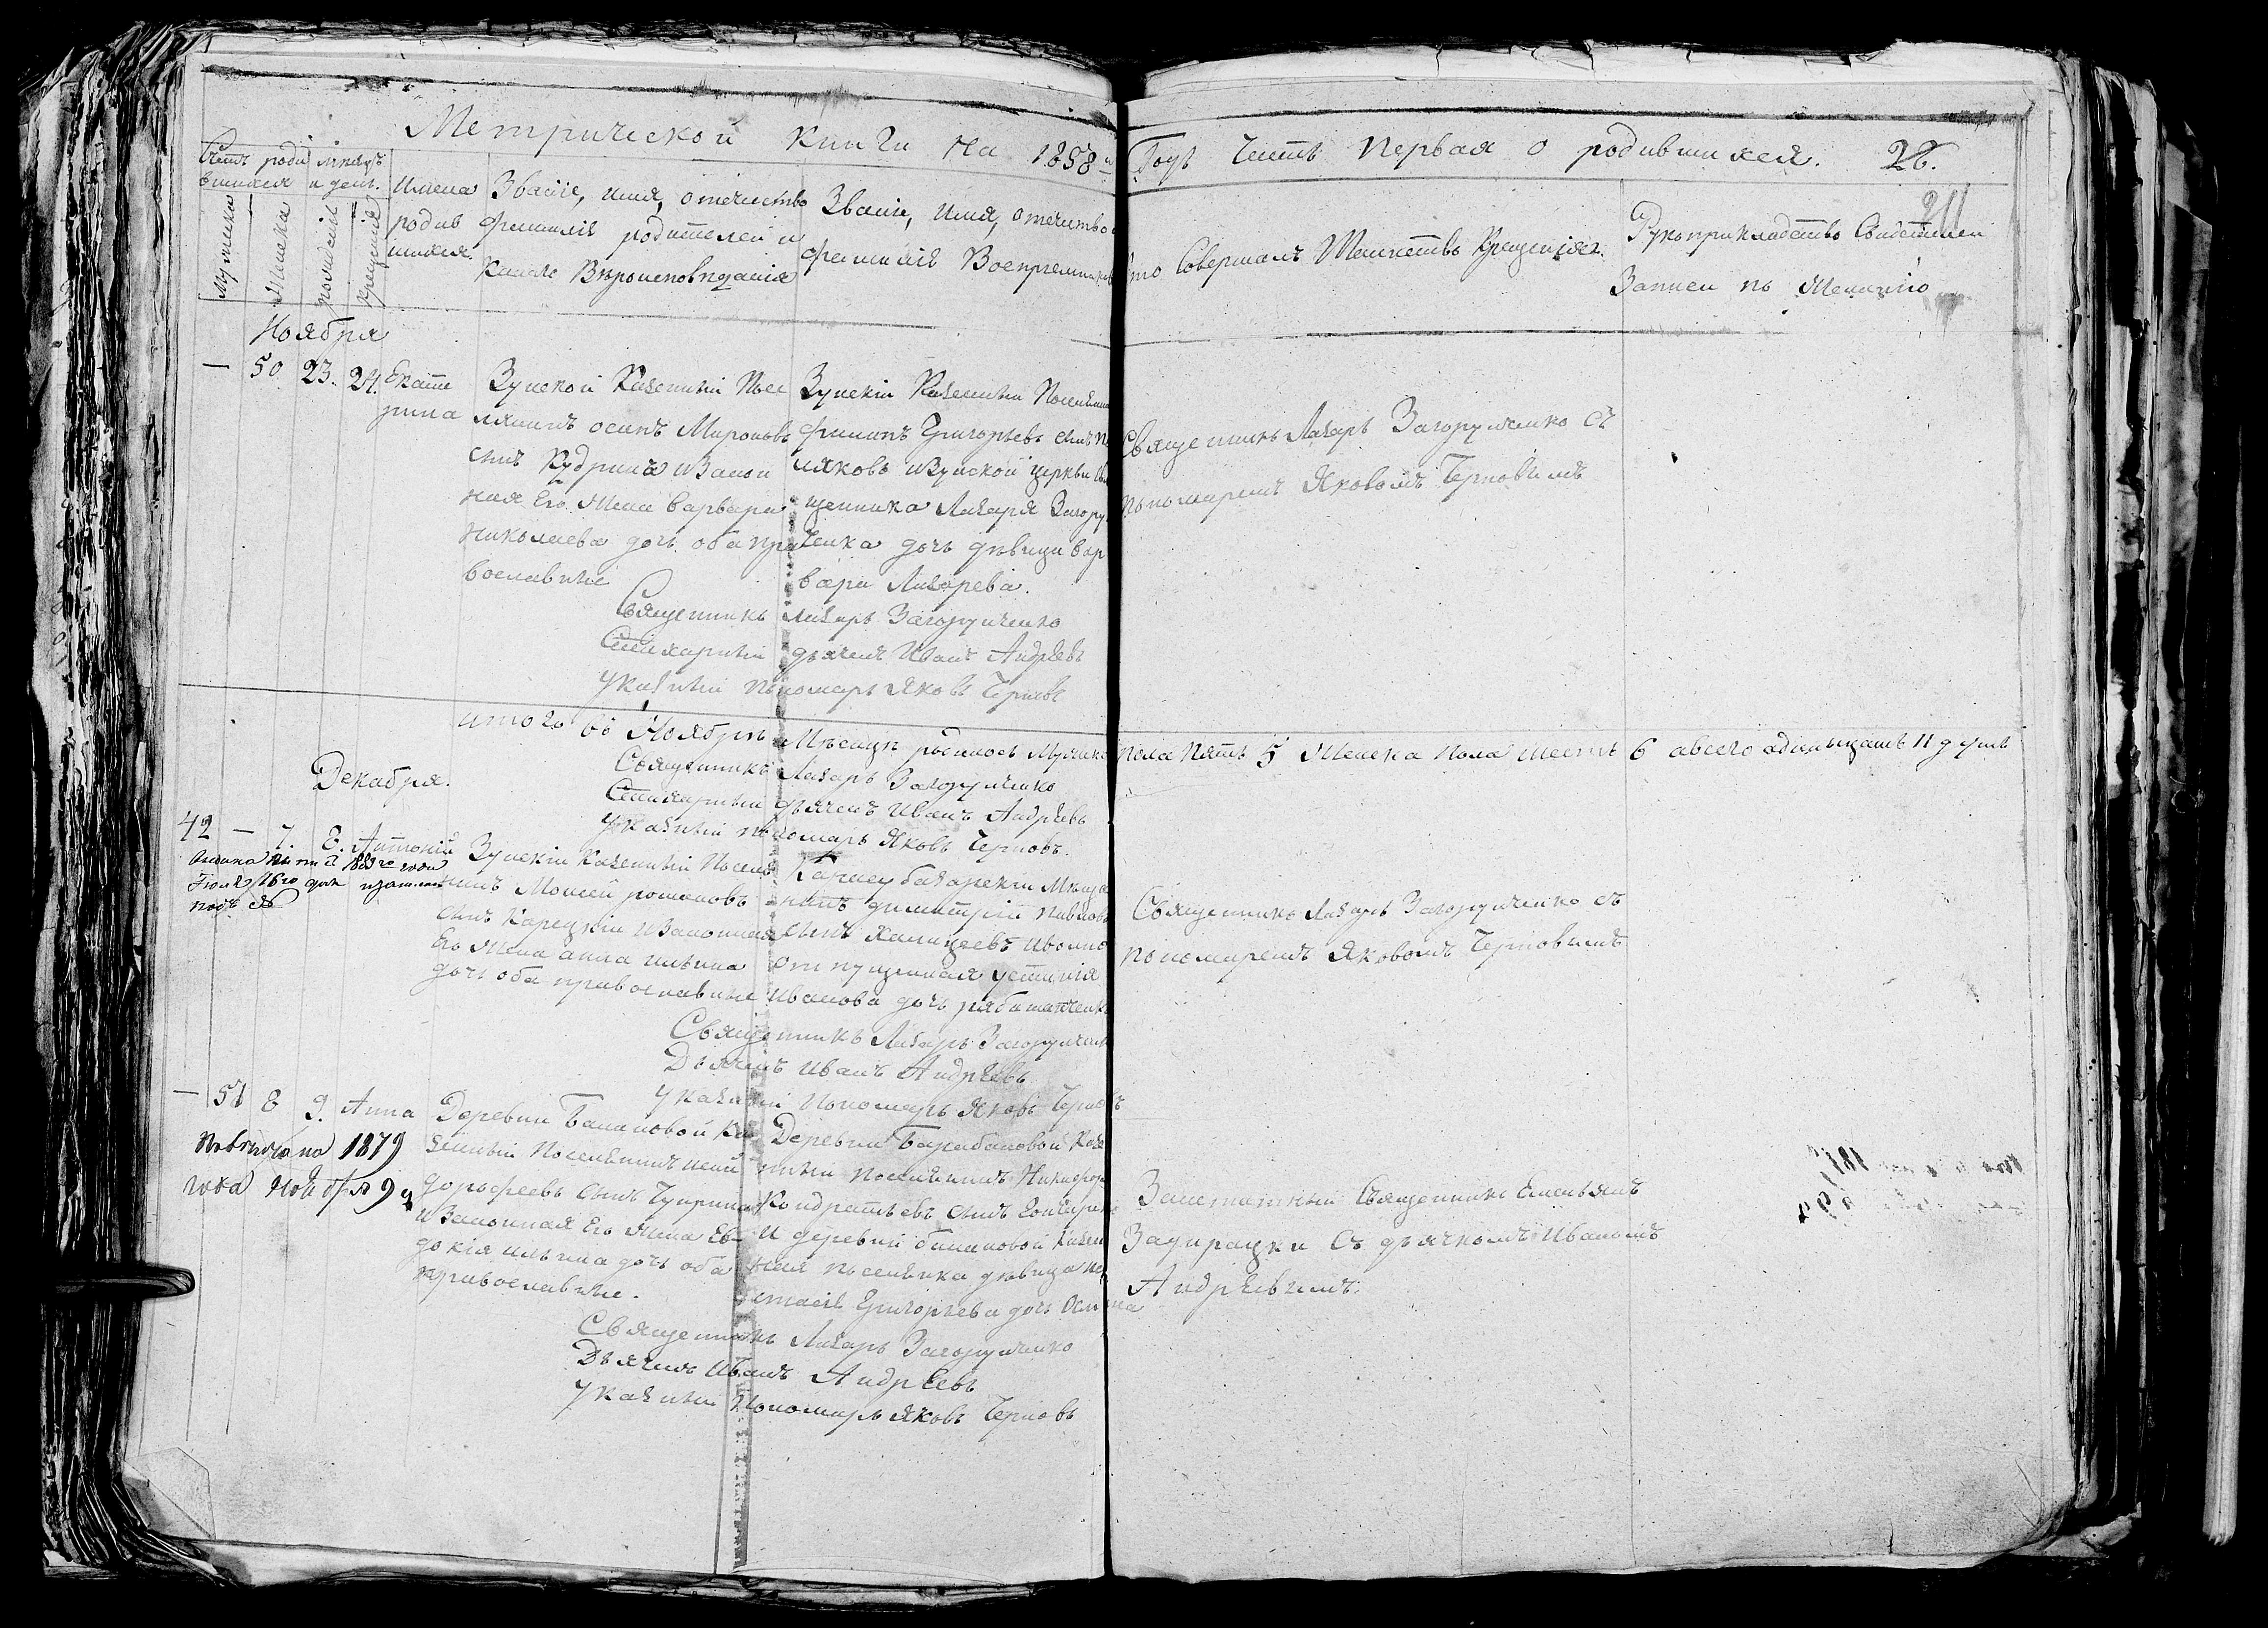 Метрической книги на 1858й Годъ Часть первая о родившихся. 28.
211
Счетъ роди
вшихся
Мужеска
Женска
Мѣсяцъ
и день.
рождения
крещения
Имена
родив
шихся.
Званіе, имя, отечество
фамилія родителей и
какого Вѣроисповѣданія
Званіе, имя, отечество
фамилія Воспріемниковъ
Кто Совершалъ Таинство Крещенія.
Рукоприкладство Свидѣтелей
Записи по Желанію
Ноября
— 50 23. 24. Екате
рина
Зуйской Казенный Посе
лянинъ осипъ Мироновъ
сынъ Кудринъ и Закон
ная Его Жена Варвара
Николаева дочь оба пра
вославные
Зуйскій Казенный Поселянинъ
филипъ Григорьевъ сынъ
ляковъ и Зуйской церкви Свя
щенника Лазаря Загору
ченка дочь дѣвица вар
вара Лазарева.
Священникъ Лазарь Загорученко съ
пономаремъ Яковомъ Черновымъ
Священникъ Лазарь Загорученко
Стихарный дьячекъ Иванъ Андреевъ
Указный пономарь Яковъ Черновъ
итого въ Ноябрѣ Мѣсяцѣ родилось Мужеска пола пять 5 Женска пола шесть 6 авсего адинацать 11 душъ
Священникъ Лазарь Загорученко
Стихарный дьячекъ Иванъ Андреевъ
Указный пономарь Яковъ Черновъ.
Декабря.
42 — 7. 8. Антоній
1889го года
Іюля 16го дня
подъ №
Зуйскій Казенный Поселя
нинъ Моисей романовъ
сынъ Карецкій и Законная
Его Жена анна ильина
дочь оба православные
Карасубазарскій Мѣща
нинъ димитрій павловъ
сынъ
отпущенная устинія
Иванова дочь
Священникъ Лазарь Загорученко съ
пономаремъ Яковомъ Черновымъ
Священникъ Лазарь Загорученко
Дьячекъ Иванъ Андреевъ
Указный Пономарь Яковъ Черновъ
— 51 8 9. Анна
Повѣнчана 1879
года Ноября 9 д
Деревни Банановой Ка
зенный Поселянинъ
дорофеевъ сынъ Чупринъ
и Законная Его Жена Ев
докія ильина дочь оба
православные.
Деревни Барабановой Казе
нный поселянинъ Никифоръ
Кондратьевъ сынъ
И деревни банановой Казен
ная поселянка дѣвица
стасія Григорьева дочь
Заштатный Священникъ Емельянъ
Задирацки съ дьячкомъ Иваномъ
Андреевымъ.
Священникъ Лазарь Загорученко
Дьячекъ Иванъ Андреевъ
Указный Пономарь Яковъ Черновъ